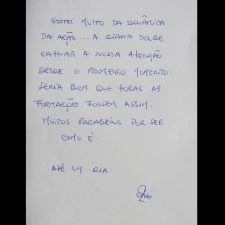 GOSTEI MUITO DA DINÂMICA
DA AÇÃO... A DIANA SOUBE
CATIVAR A NOSSA ATENÇÃO
DESDE O PRIMEIRO MOMENTO.
SERIA BOM QUE TODAS AS
FORMAÇÕES FOSSEM ASSIM.
MUITOS PARABÉNS POR SER
COMO É.
ATÉ UM DIA